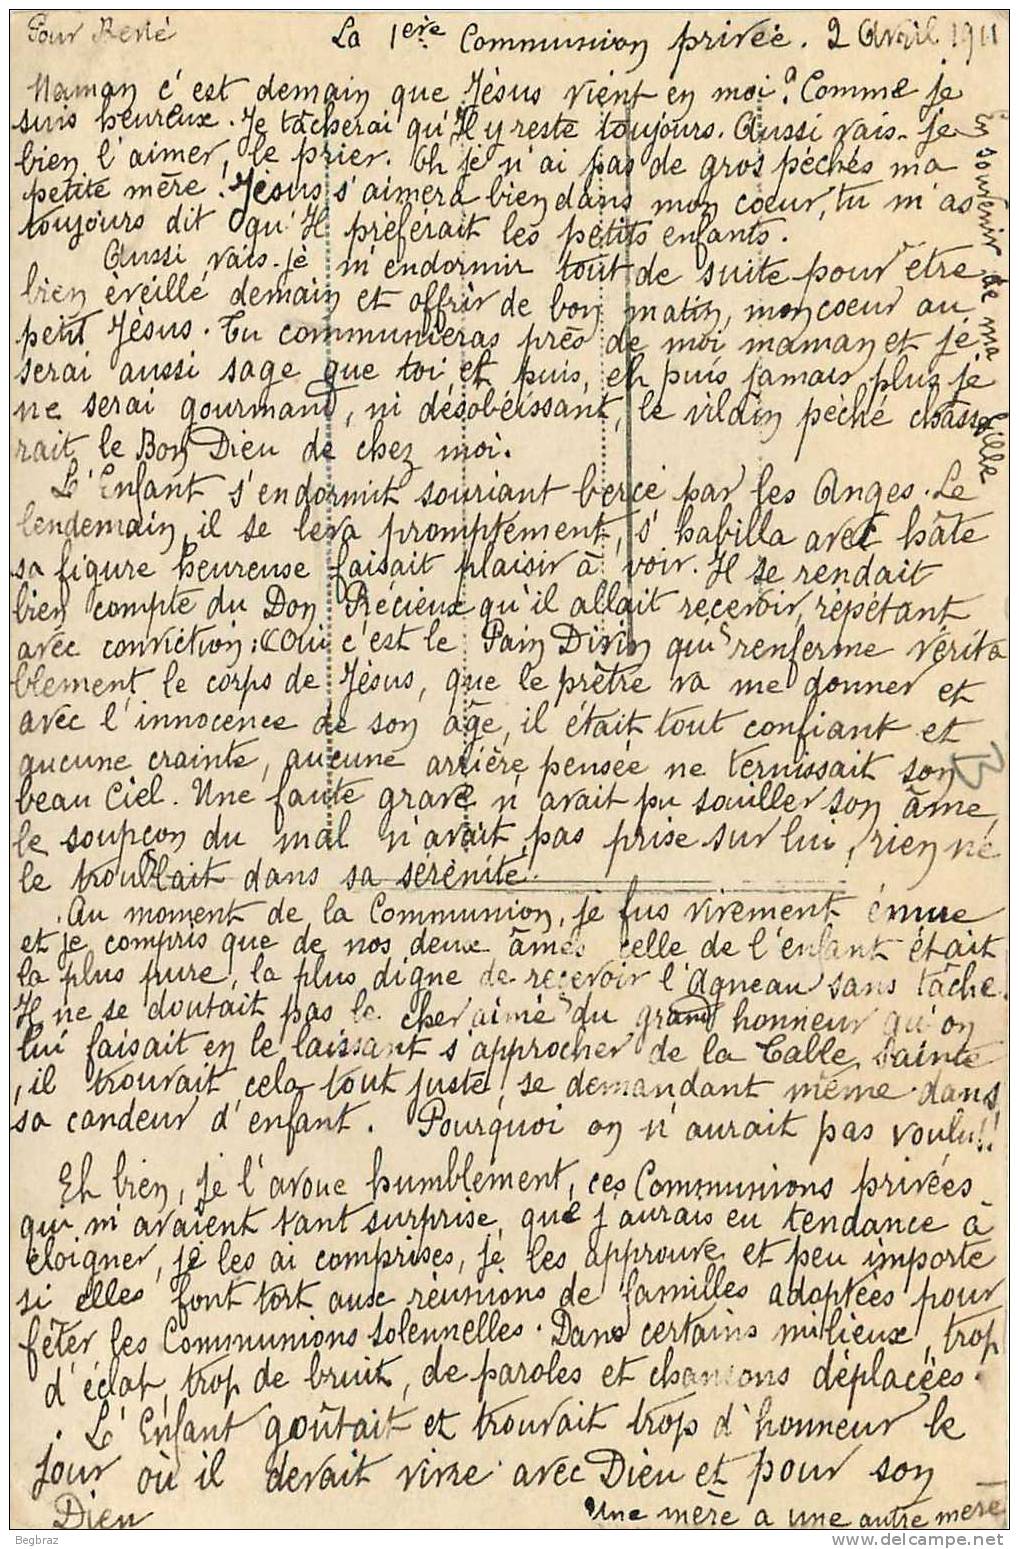 Pour René
La 1ère Communion privée. 2 Avril 1911
Maman c'est demain que Jésus vient en moi? Comme je
suis heureux. Je tâcherai qu'Il y reste toujours. Aussi vais-je
bien l'aimer, le prier. Oh je n'ai pas de gros péchés ma
petite mère! Jésus s'aimera bien dans mon coeur, tu m'as
toujours dit qu'Il préférait les petits enfants.
Aussi vais-je m'endormir tout de suite pour être
bien éveillé demain et offrir de bon matin, mon coeur au
petit Jésus. Tu communieras près de moi maman et je
serai aussi sage que toi, et puis, eh puis jamais plus je
ne serai gourmand, ni désobéissant, le vilain péché chasse
rait le Bon Dieu de chez moi.
L'Enfant s'endormit souriant bercé par les Anges. Le
lendemain, il se leva promptement, s'habilla avec hâte
sa figure heureuse faisait plaisir à voir. Il se rendait
bien compte du Don Précieux qu'il allait recevoir, répétant
avec conviction: (Oui c'est le Pain Divin qui renferme vérita
blement le corps de Jésus, que le prêtre va me donner et
avec l'innocence de son âge, il était tout confiant et
aucune crainte, aucune arrière pensée ne ternissait son
beau Ciel. Une faute grave n'avait pu souiller son âme,
le soupçon du mal n'avait pas prise sur lui, rien ne
le troublait dans sa sérénité.
Au moment de la Communion, je fus vivement émue
et je compris que de nos deux âmes celle de l'enfant était
la plus pure, la plus digne de recevoir l'Agneau sans tâche.
Il ne se doutait pas le cher aimé du grand honneur qu'on
lui faisait en le laissant s'approcher de la Table Sainte
, il trouvait cela tout juste, se demandant même dans
sa candeur d'enfant. Pourquoi on n'aurait pas voulu!!
Eh bien, je l'avoue humblement, ces Communions privées
qui m'avaient tant surprise, que j'aurais eu tendance à
éloigner, je les ai comprises, je les approuve et peu importe
si elles font tort aux réunions de familles adoptées pour
fêter les Communions solennelles. Dans certains milieux, trop
d'éclat, trop de bruit, de paroles et chansons déplacées.
L'Enfant goûtait et trouvait trop d'honneur le
jour où il devait vivre avec Dieu et pour son
Dieu
Une mère a une autre mère
En souvenir de ma fille
Begbraz
www.delcampe.net